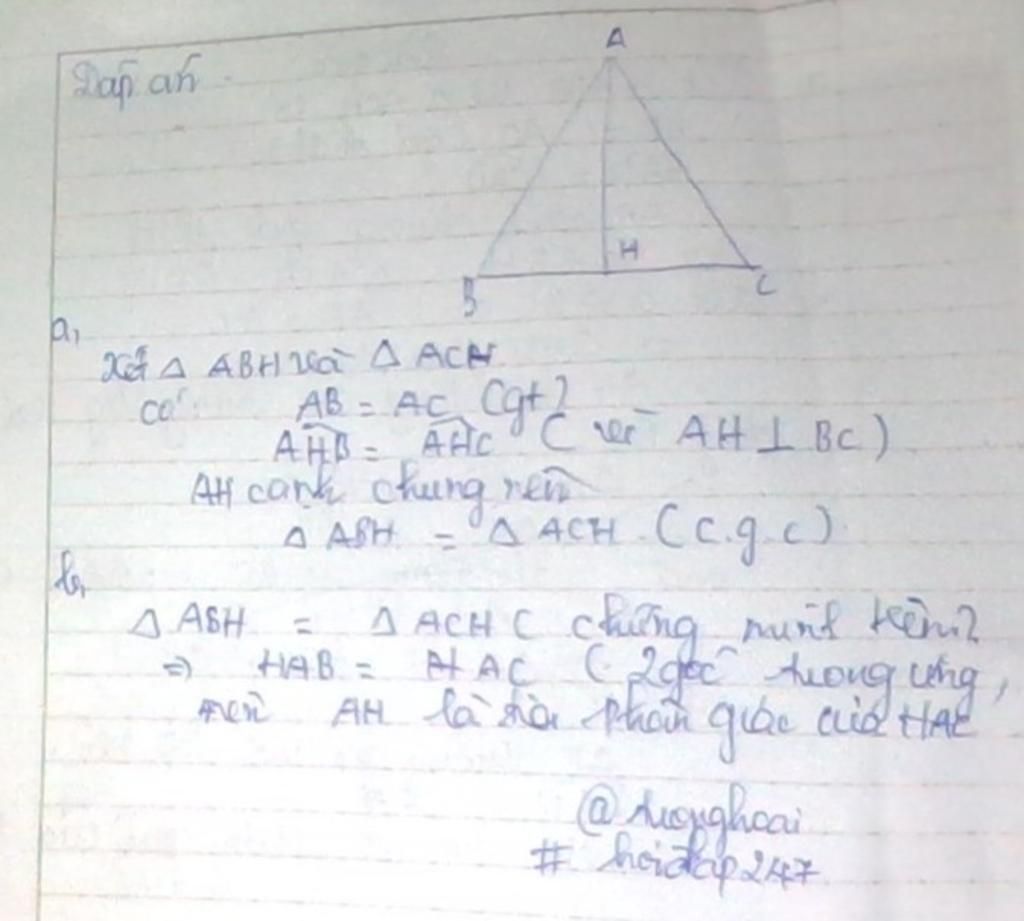 Đáp án
A
H
B
C
a,
Xét △ ABH và △ ACH
có: AB = AC (gt)
AHB = AHC ( vì AH ⊥ BC )
AH cạnh chung nên
△ ABH = △ ACH (c.g.c)
b,
△ ABH = △ ACH ( chứng minh trên)
=> HAB = HAC ( 2 góc tương ứng,
nên AH là tia phân giác của HAC
@tuonghoai
# hoidap247